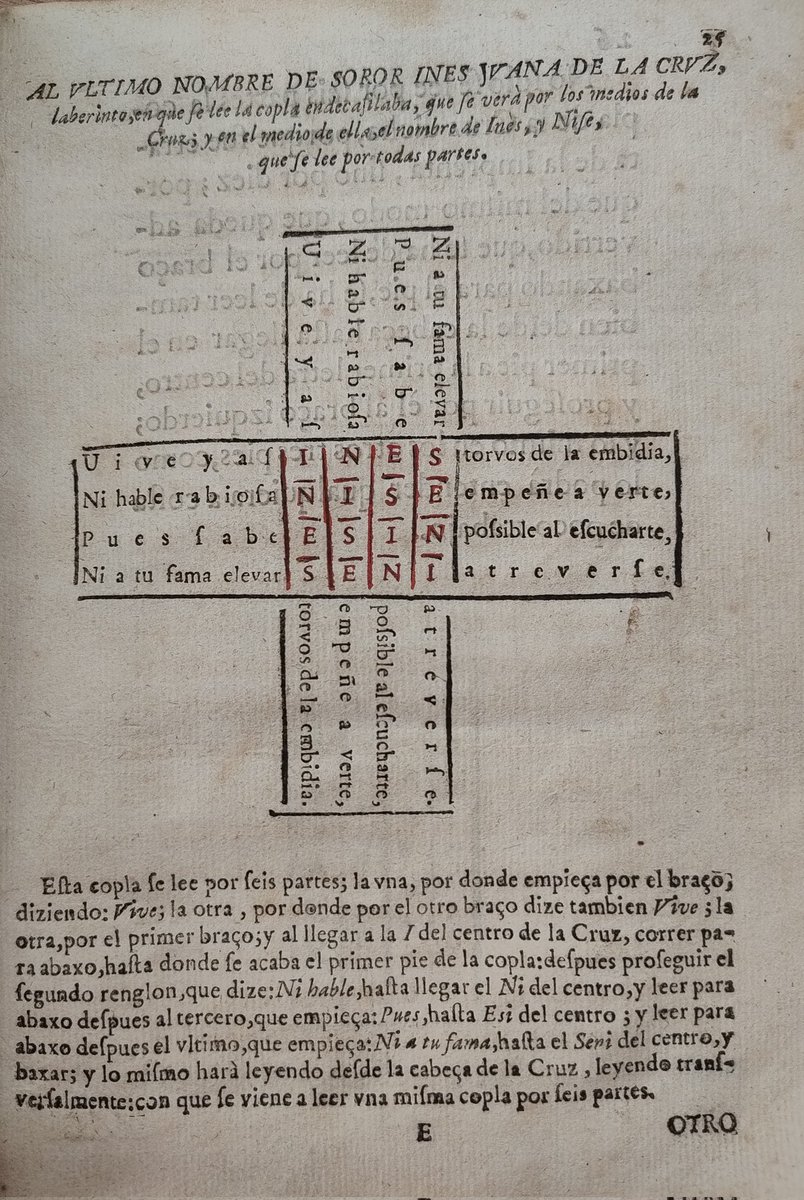 25
AL VLTIMO NOMBRE DE SOROR INES JVANA DE LA CRVZ,
laberinto, en que ſe lee la copla endecaſilaba, que ſe verà por los medios de la
Cruz; y en el medio de ella, el nombre de Inès, y Niſe,
que ſe lee por todas partes.
Uive y aſ
Ni hable rabioſa
Pues ſabe
Ni a tu fama elevar
Uive y aſ I N E S torvos de la embidia,
Ni hable rabioſa N I S E empeñe a verte,
Pues ſabe E S I N poſsible al eſcucharte,
Ni a tu fama elevar S E N I atreverſe.
torvos de la embidia.
empeñe a verte,
poſsible al eſcucharte,
atreverſe.
Eſta copla ſe lee por ſeis partes; la vna, por donde empieça por el braço;
diziendo: Vive; la otra, por donde por el otro braço dize tambien Vive; la
otra, por el primer braço; y al llegar a la I del centro de la Cruz, correr pa-
ra abaxo, haſta donde ſe acaba el primer pie de la copla: deſpues proſeguir el
ſegundo renglon, que dize: Ni hable, haſta llegar el Ni del centro, y leer para
abaxo deſpues al tercero, que empieça: Pues, haſta Esi del centro; y leer para
abaxo deſpues el vltimo, que empieça: Ni a tu fama, haſta el Seni del centro, y
baxar; y lo miſmo harà leyendo deſde la cabeça de la Cruz, leyendo tranſ-
verſalmente: con que ſe viene a leer vna miſma copla por ſeis partes.
E
OTRO